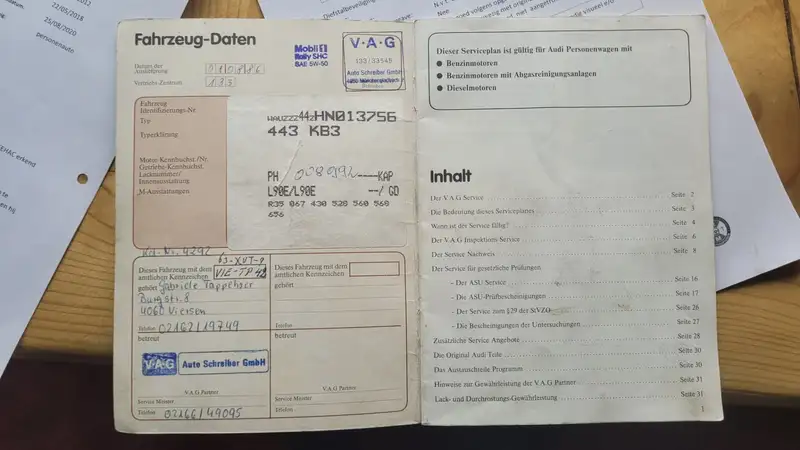 22/05/2018
25/08/2020
personenauto
Fahrzeug-Daten
Datum der
Auslieferung
010886
Vertriebs-Zentrum
133
Mobil 1
Rally SHC
SAE 5W-50
V·A·G
132/33548
Auto Schreiber GmbH
Fahrzeug
Identifizierungs-Nr.
Typ
Typerklärung
Motor-Kennbuchst./Nr.
Getriebe-Kennbuchst.
Lacknummer/
Innenausstattung
M-Ausstattungen
WAUZZZ44ZHN013756
443 KB3
PH
KAP
L90E/L90E --/ GD
R35 067 430 528 560 568
656
Kd.-Nr. 4292
Dieses Fahrzeug mit dem
amtlichen Kennzeichen
VIE-TP 42
gehört Gabriele
Burgstr. 8
4060 Viersen
Telefon 02162/19749
betreut
V·A·G Auto Schreiber GmbH
V.A.G Partner
Service Meister
Telefon 02166/49095
Dieses Fahrzeug mit dem
amtlichen Kennzeichen
gehört
Telefon
betreut
V.A.G Partner
Service Meister
Telefon
Dieser Serviceplan ist gültig für Audi Personenwagen mit
● Benzinmotoren
● Benzinmotoren mit Abgasreinigungsanlagen
● Dieselmotoren
Inhalt
Der V.A.G Service Seite 2
Die Bedeutung dieses Serviceplanes Seite 3
Wann ist der Service fällig? Seite 4
Der V.A.G Inspektions Service Seite 6
Der Service Nachweis Seite 8
Der Service für gesetzliche Prüfungen
- Der ASU Service Seite 16
- Die ASU-Prüfbescheinigungen Seite 17
- Der Service zum §29 der StVZO Seite 26
- Die Bescheinigungen der Untersuchungen Seite 27
Zusätzliche Service Angebote Seite 28
Die Original Audi Teile Seite 30
Das Austauschteile Programm Seite 30
Hinweise zur Gewährleistung der V.A.G Partner Seite 31
Lack- und Durchrostungs-Gewährleistung Seite 31
1